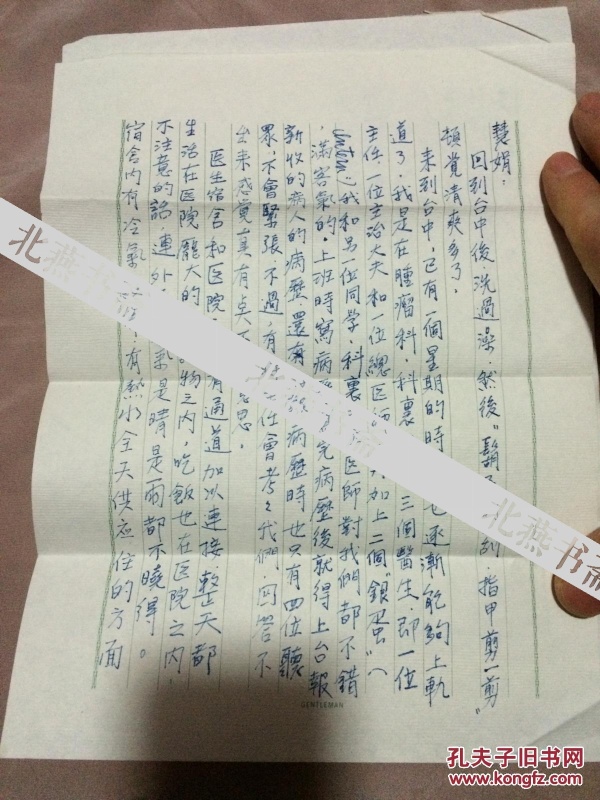 慧娟：
回到台中後,洗過澡,然後"鬍子 刮,指甲剪一剪"
頓覺清爽多了。
来到台中,已有一個星期的時 也逐漸能夠上軌
道了,我是在腫瘤科,科裏 三個醫生,即一位
主任,一位主治大夫和一位總医師 加上二個"銀蛋"(
Intern),我和另一位同学,科裏 医師對我們都不錯
,滿客氣的。上班時寫病 完病歷後就得上台報
新收的病人的病歷,還 病歷時也只有四位聽
眾,不會緊張,不過,有 主任會考考我們,回答不
出来感覺真有点不 思。
医生宿舍和医院 有通道加以連接,整天都
生活在医院龐大的 物之内,吃飯也在医院之内
不注意的話,連外 氣是晴是雨都不曉得。
宿舍内有冷氣 ,有熱水全天供应,住的方面
GENTLEMAN
北燕书斋
北燕书斋
孔夫子旧书网
www.kongfz.com